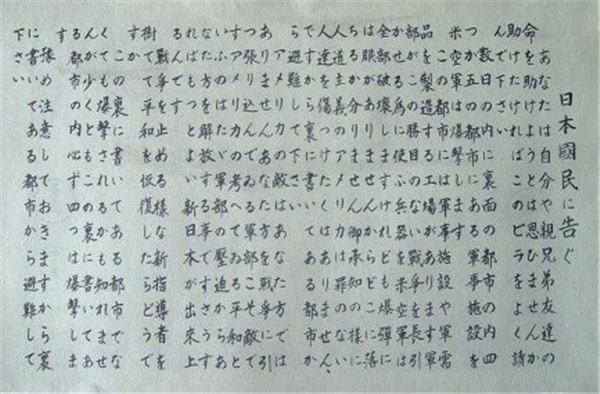 日本國民に告ぐ
あなたは自分や親兄弟友達の
命を助けようとは思ひませんか
助けたければこのビラをよく讀
んで下さい
数日の内に裏面の都市の内四
つか五つの都市にある軍事施設を
米空軍は爆撃します
この都市には軍事施設や軍需
品を製造する工場があります軍
部はこの勝目のない戦争を長引
かせる為に使ふ兵器を米空軍は
全部破壊しますけれども爆弾に
は眼がありませんからどこに落
ちるか分りません御承知の様に
人道主義のアメリカは罪のない
人達を傷つけたくはありません
ですから裏に書いてある都市
から避難して下さい
アメリカの敵はあなた方では
ありませんあなた方を戦争に引
つ張り込んでゐる軍部こそ敵で
すアメリカの考へてゐる平和と
いふのはたゞ軍部の壓迫からあ
なた方を解放する事ですさうす
ればもつとよい新日本が出来上
るんです
戦争を止める様な新指導者を
樹てて平和を恢復したらどうで
すか
この裏に書いてある都市でな
くても爆撃されるかも知れませ
んが少くともこの裏に書いてあ
る都市の内必ず四つは爆撃しま
す
豫め注意しておきますから裏
に書いてある都市から避難して
下さい